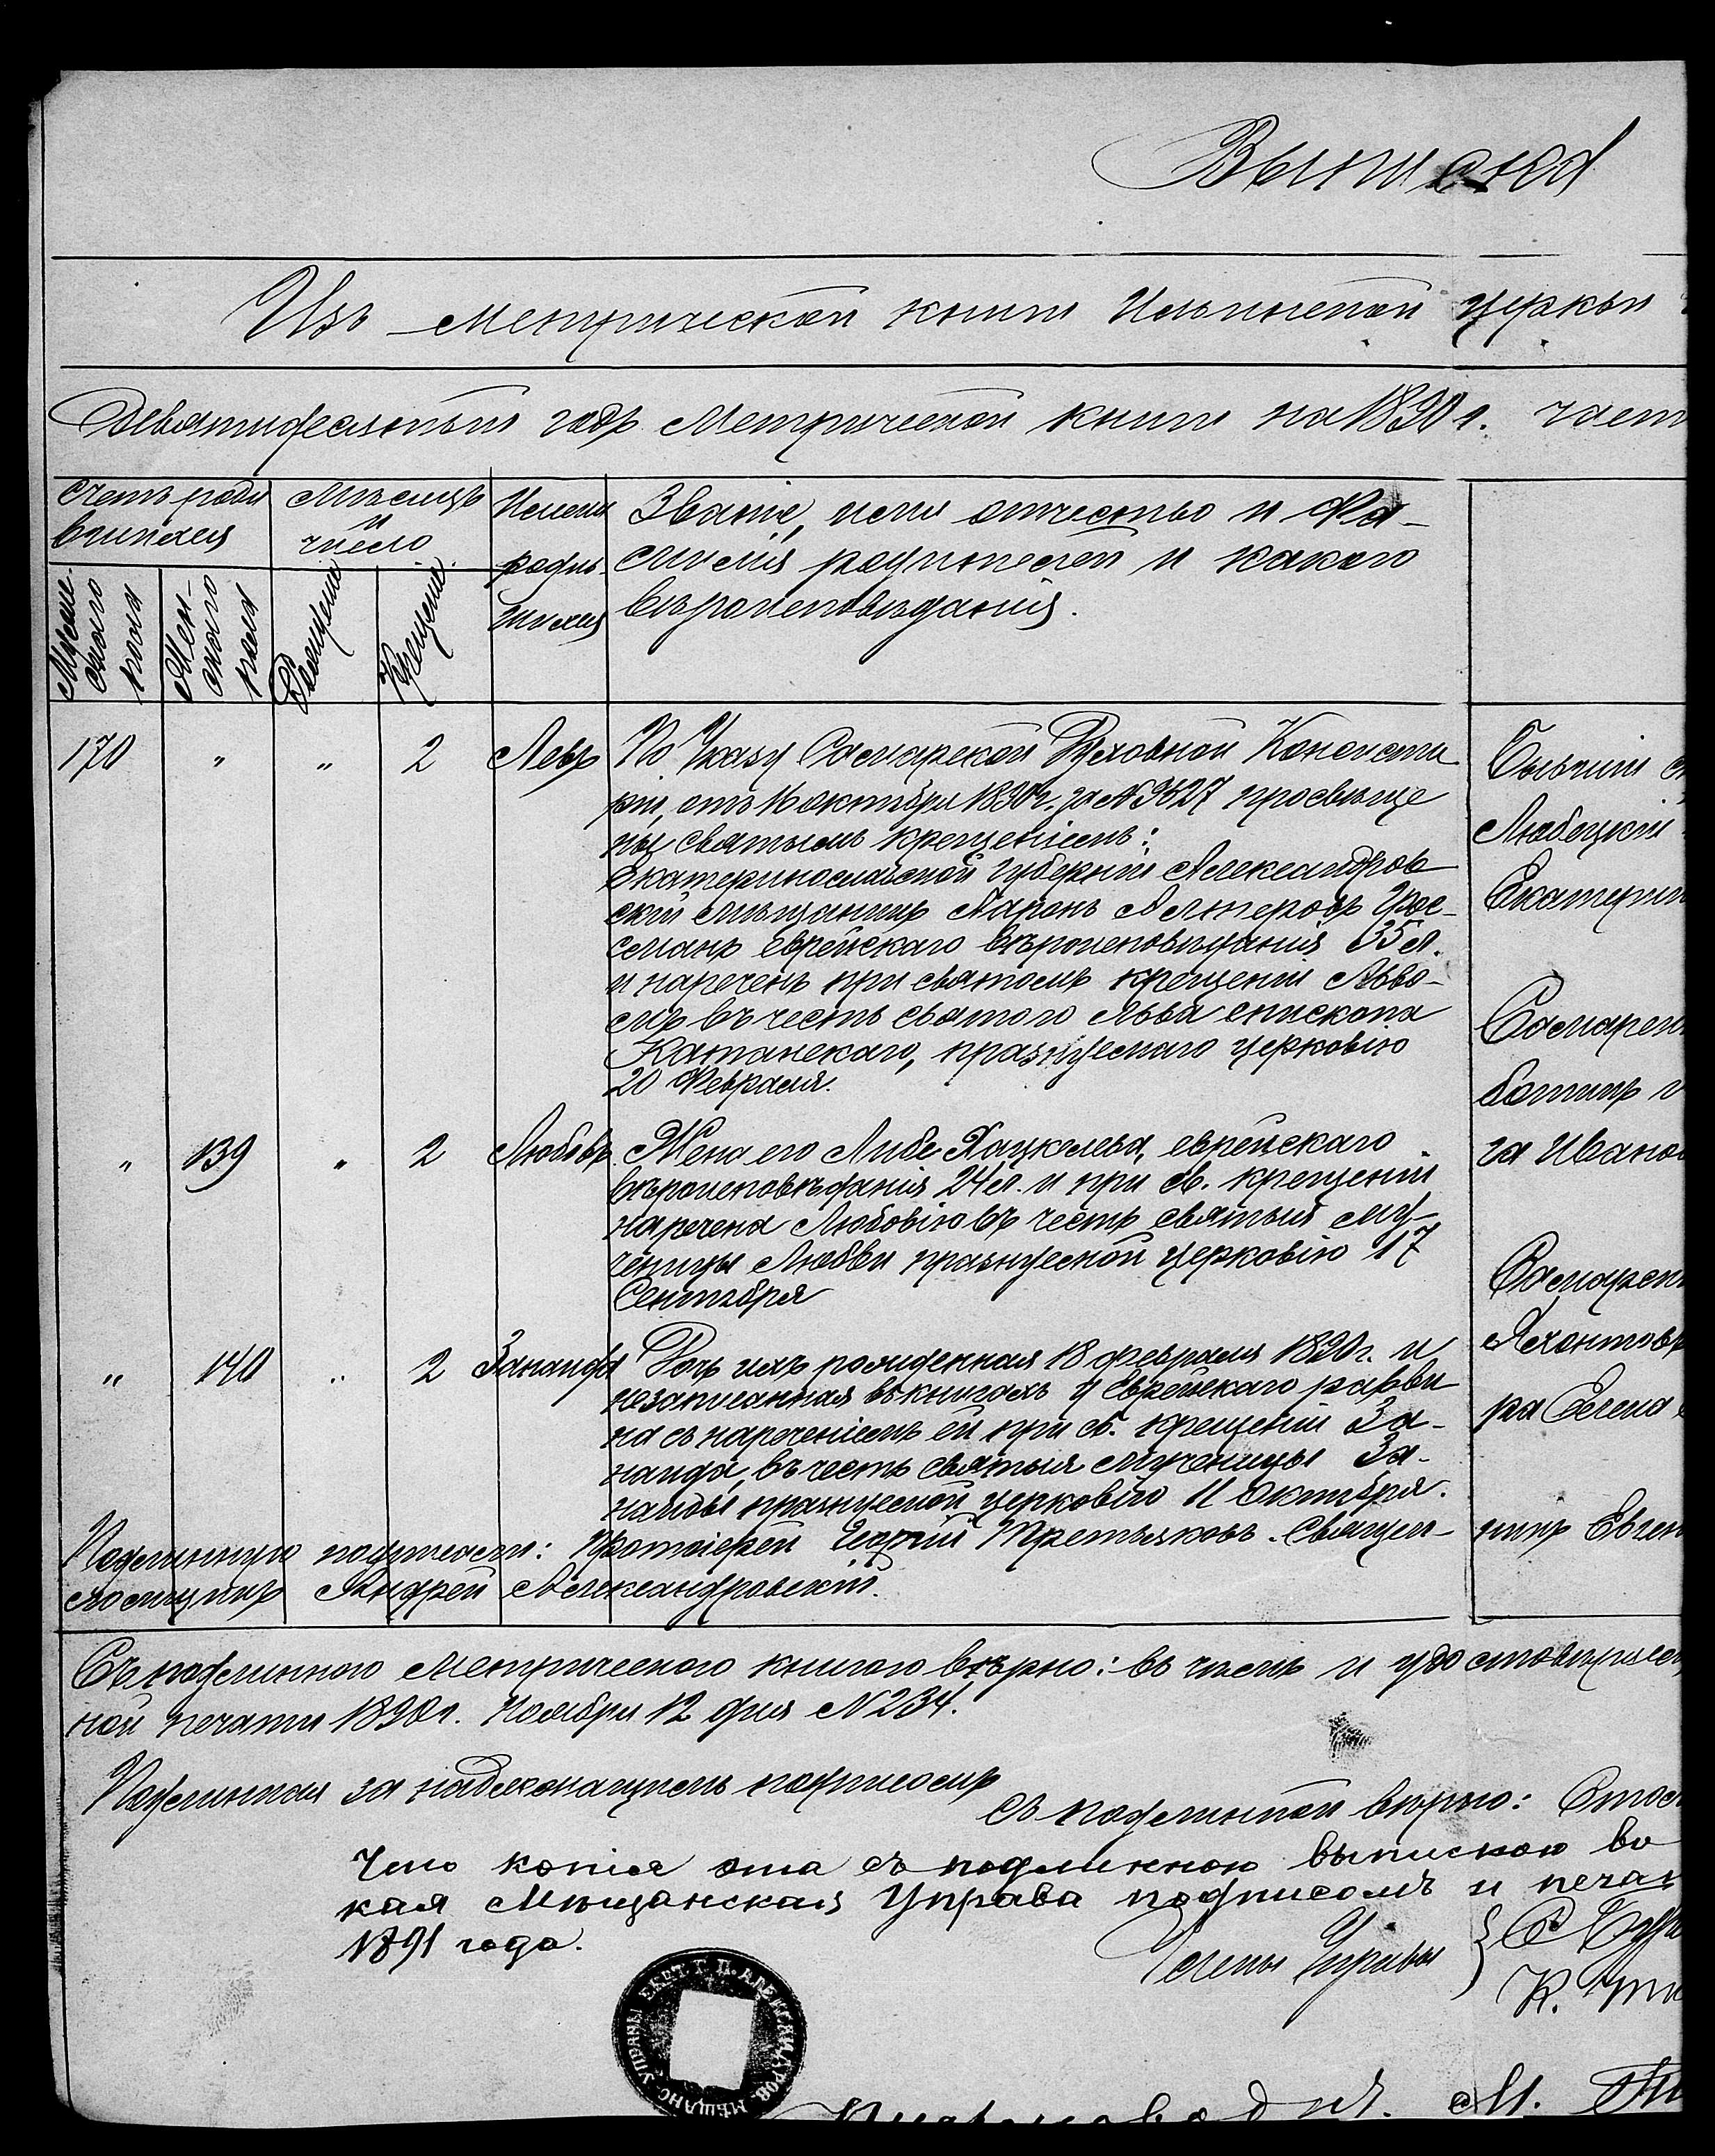 Выписка
Изъ Метрической книги Ильинской церкви
Девятидесятый годъ Метрической книги на 1890 г. част
Счетъ роди
вшихся
Мѣсяцъ
и
число
Имена
родив-
шихся
Званіе, имя отчество и Фа-
милія родителей и какого
вѣроисповѣданія.
Муже-
скаго
пола
Жен-
скаго
пола
Рожденія
Крещенія.
170 " " 2 Левъ По Указу Самарской Духовной Консисто
ріи, отъ 16 октября 1890 г. за № 9627 просвѣще
ны святымъ крещеніемъ:
Екатеринославской губерніи Александров
скій мѣщанинъ Ааронъ Лейзеровъ
еврейскаго вѣроисповѣданія 35 л.
и нареченъ при святомъ крещеніи Льво-
мъ въ честь святого Льва епископа
Катанскаго, празднуемаго церковію
20 Февраля.
" 139 " 2 Любовь Жена его Либе Хацкелева, еврейскаго
вѣроисповѣданія 24 л. и при св. крещеніи
наречена Любовію въ честь святыя му-
ченицы Любви празднуемой церковію 17
Сентября
" 140 " 2 Зинаида Дочь ихъ рожденная 18 февраля 1890 г. и
незаписанная въ книгахъ у Еврейскаго равви
на съ нареченіемъ ей при св. крещеніи Зи-
наида, въ честь святыя мученицы Зи-
наиды празднуемой церковію 11 Октября.
Подлинную подписали: Протоіерей Георгій Третьяковъ. Священ-
Андрей Александровскій.
Бывшій
Любецкій
Екатерин
Самарск
за Ивано
Самарск
Яхонтовъ
ра Елена
Евген
Съ подлинною Метрическою книгою вѣрно: въ чемъ и удостовѣряем
ной печати 1890 г. Ноября 12 дня № 234.
Подлинная за надлежащимъ подписомъ
Съ подлинной вѣрно:
Что копія эта съ подлинною выпискою во
кая Мѣщанская Управа подписомъ и печат
1891 года.
Члены Управы
ЕКАТ. Г. П. АЛЕКСАНДРОВ. МѢЩАНС. УПРАВЫ
М.